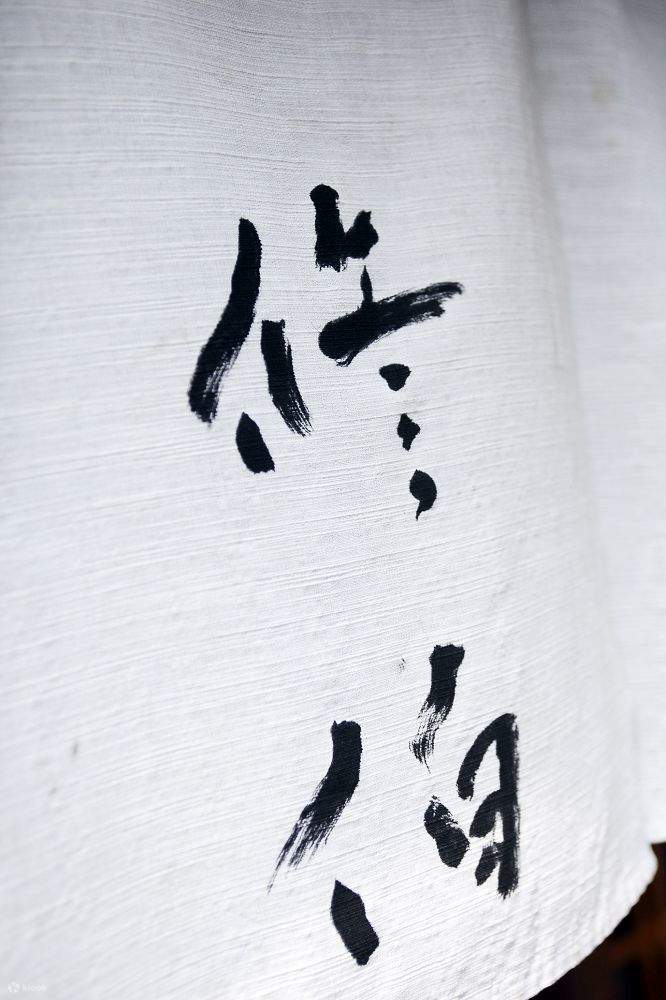 修伯
klook